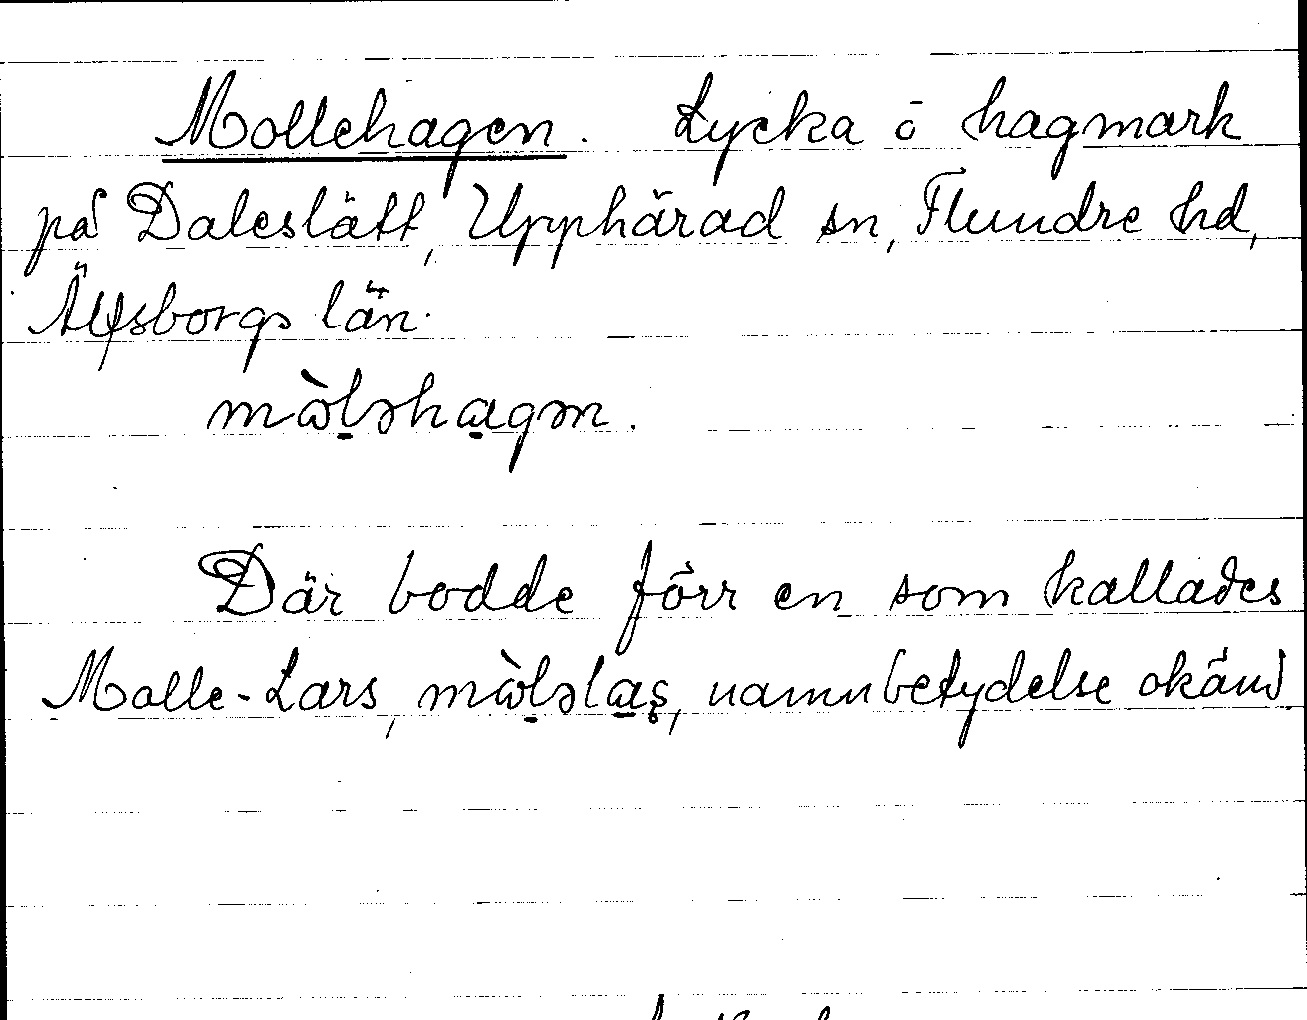 Mollehagen. Lycka o hagmark
på Daleslätt, Upphärad sn, Flundre hd,
Älfsborgs län.
mὼl̠əha̠gən.
Där bodde förr en som kallades
Molle-Lars, mὼl̠əla̠ʂ, namnbetydelse okänd